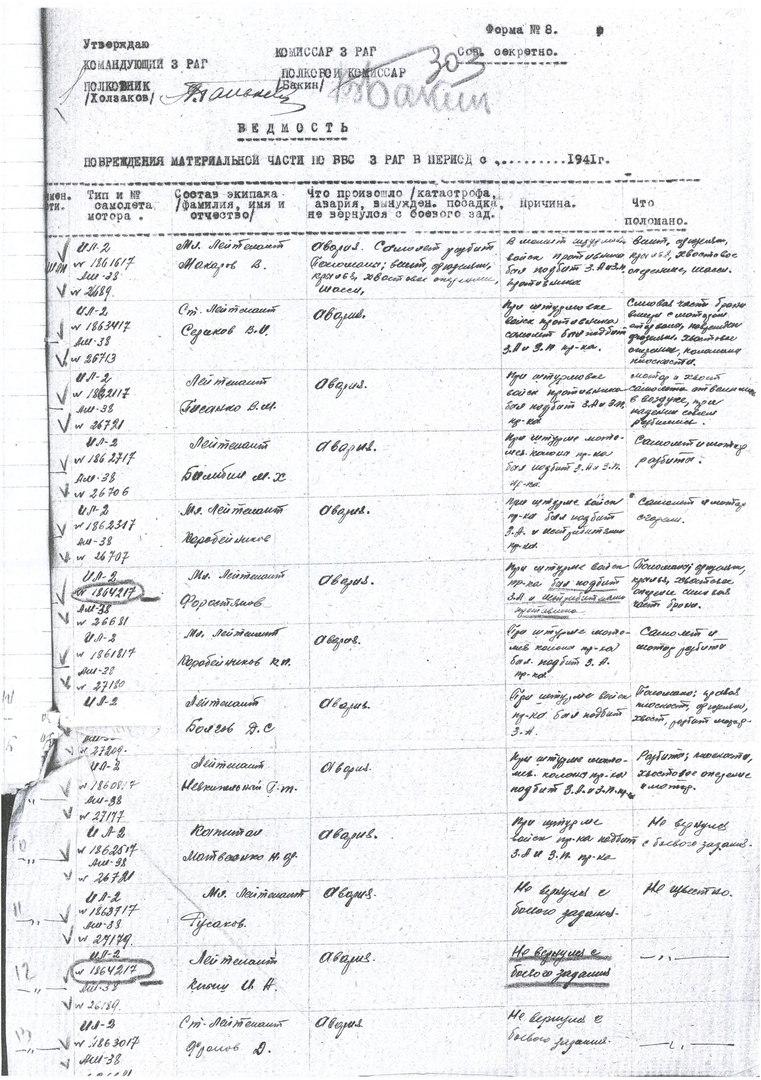 Форма № 8.
Утверждаю
КОМИССАР 3 РАГ
Сов. секретно.
КОМАНДУЮЩИЙ 3 РАГ
303
ПОЛКОВНИК
ПОЛКОВОЙ КОМИССАР
/Холзаков/
/Бакин/
Бакин
ВЕДМОСТЬ
ПОВРЕЖДЕНИЯ МАТЕРИАЛЬНОЙ ЧАСТИ ПО ВВС 3 РАГ В ПЕРИОД с ,..........1941г.
Тип и №
самолета
мотора .
Состав экипажа
/фамилия, имя и
отчество/
Что произошло /катастрофа,
авария, вынужден. посадка,
не вернулся с боевого зад.
Причина.
Что
поломано.
ИЛ-2
№ 1861617
АМ-38
№ 2689
Мл. Лейтенант
Макаров В.
авария. Самолет разбит
Поломано; винт, фюзеляж,
крылья, хвостовое оперение,
шасси,
войск противника
был подбит З.А и З.П.
противника
винт, фюзеляж,
крылья, хвостовое
оперение, шасси.
ИЛ-2
№ 1863417
АМ-38
№ 26713
Ст. Лейтенант
авария.
При штурмовке
войск противника
самолет был подбит
З.А и З.П. пр-ка.
ИЛ-2
АМ-38
№ 26721
Лейтенант
Писанко В.М.
авария.
При штурмовке
войск противника
был подбит З.А и З.П.
пр-ка
мотор и хвост
самолета
в воздухе, при
разбились.
ИЛ-2
№ 1862717
АМ-38
№ 26706
Лейтенант
М. Х
авария.
При штурме мото-
мех. колонн пр-ка
был подбит З.А и З.П.
пр-ка.
Самолет и мотор
разбиты.
ИЛ-2
№ 1862317
АМ-38
№ 26707
Мл. Лейтенант
Коробейников
авария.
При штурме войск
пр-ка был подбит
З.А. и истребителями
пр-ка.
Самолет и мотор
сгорели.
ИЛ-2
№ 1864217
АМ-38
№ 26681
Мл. Лейтенант
Форостянов
авария.
При штурме войск
пр-ка был подбит
З.А и истребителями
противника
Поломано; фюзеляж,
крылья, хвостовое
часть брони.
ИЛ-2
№ 1861817
АМ-38
№ 27180
Мл. Лейтенант
Коробейников К.П.
авария.
При штурме мото-
мех колонн пр-ка
был подбит З.А.
пр-ка
Самолет и
мотор разбиты
ИЛ-2
№ 27209.
Лейтенант
Д.С
авария.
При штурме войск
пр-ка был подбит
З.А.
Поломано; правая
плоскость, фюзеляж,
хвост, разбит мотор.
ИЛ-2
№ 1860817
АМ-38
№ 27177
Лейтенант
авария.
При штурме мото-
мех. колонн пр-ка
подбит З.А. и З.П. пр-ка
Разбиты; плоскости,
хвостовое оперение
и мотор.
10
ИЛ-2
№ 1862517
АМ-38
№ 26721
Капитан
Матвеенко Н.Ф.
авария.
При штурме
войск пр-ка подбит
З.А и З.П. пр-ка
Не вернулся
с боевого задания.
11
ИЛ-2
№ 1863717
АМ-38
№ 27179.
Мл. Лейтенант
Гусаков.
авария.
Не вернулся с
боевого задания.
Не известно.
12
ИЛ-2
№ 1864217
АМ-38
№ 26189.
Лейтенант
И. А.
авария.
Не вернулся с
боевого задания
—„—
13
ИЛ-2
№ 1863017
АМ-38
Ст. Лейтенант
Фролов Д.
авария.
Не вернулся с
боевого задания.
—„—